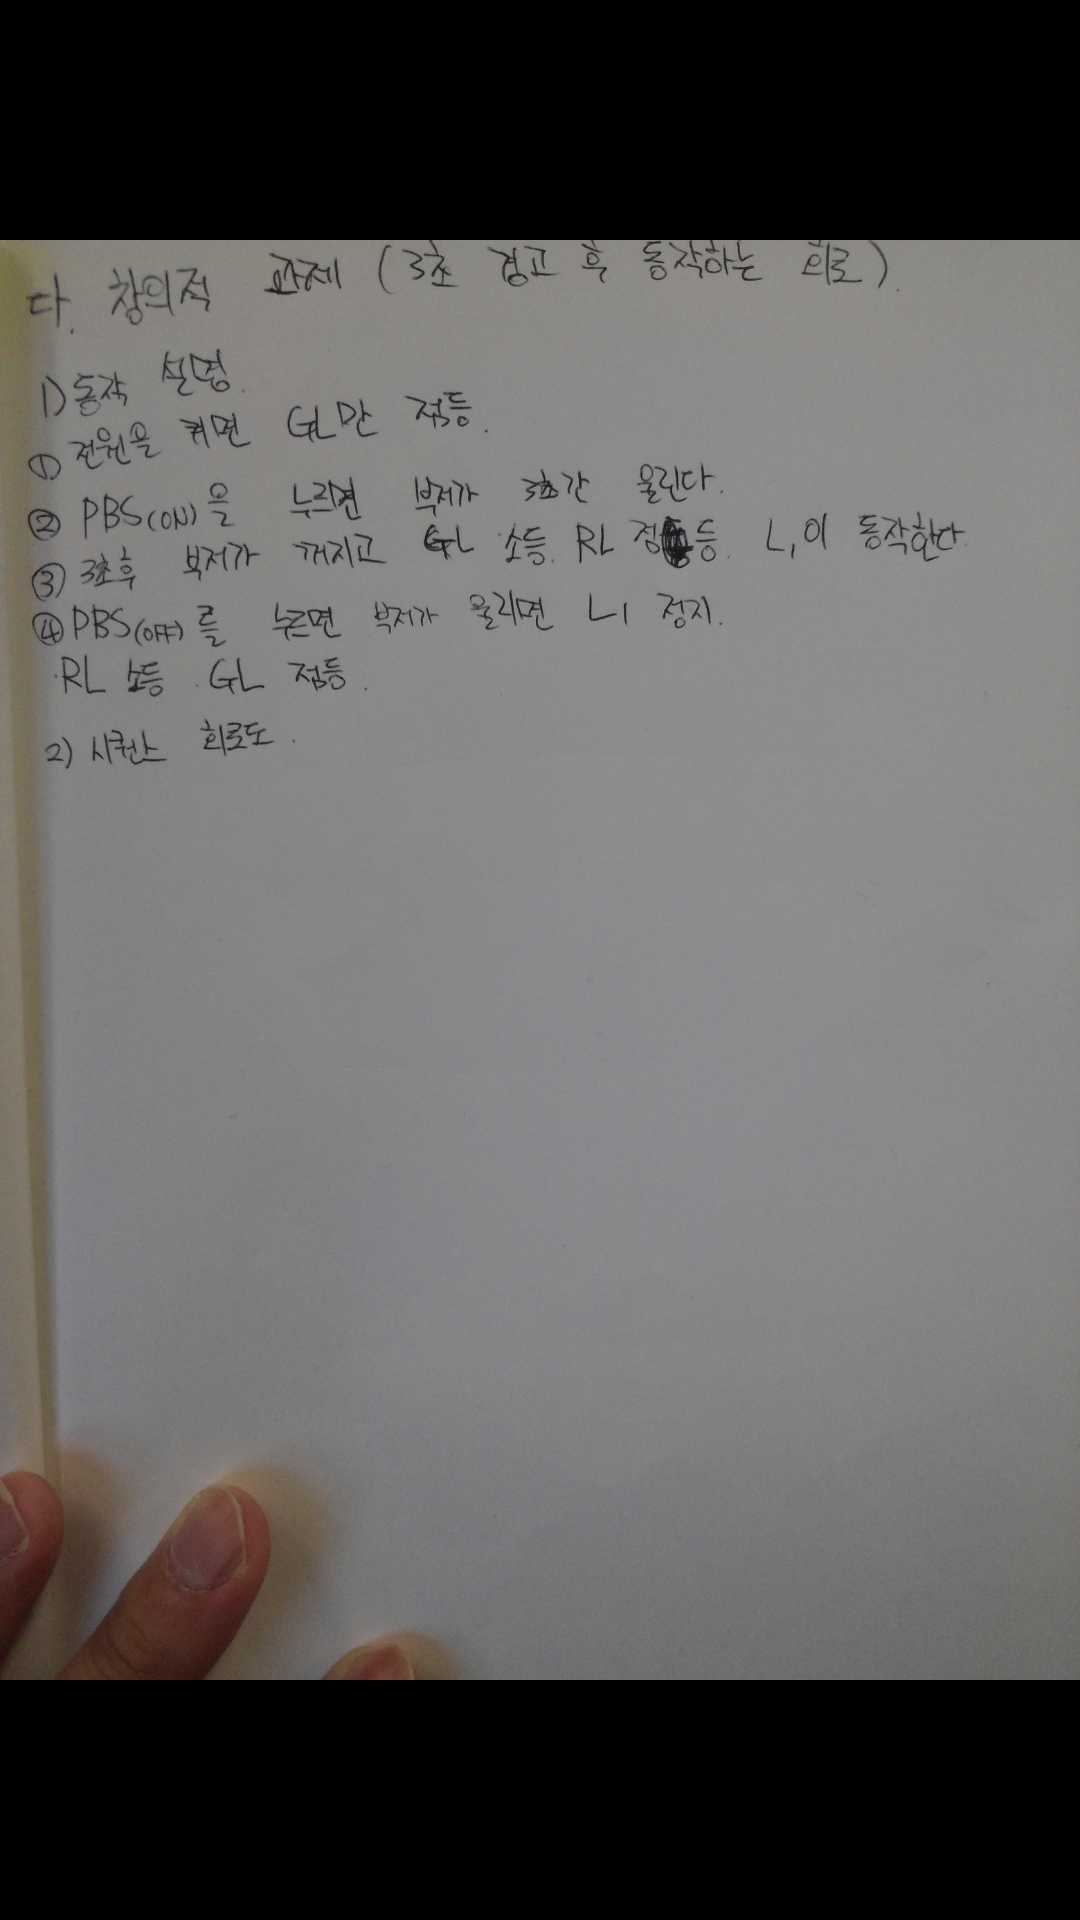 다. 창의적 과제 (3초 경고 후 동작하는 회로).
1) 동작 설명.
① 전원을 켜면 GL만 점등.
② PBS(ON)을 누르면 부저가 3초간 울린다.
③ 3초후 부저가 꺼지고 GL 소등. RL 점등. L1이 동작한다.
④ PBS(OFF)를 누르면 부저가 울리면 L1 정지.
RL 소등. GL 점등.
2) 시퀀스 회로도.